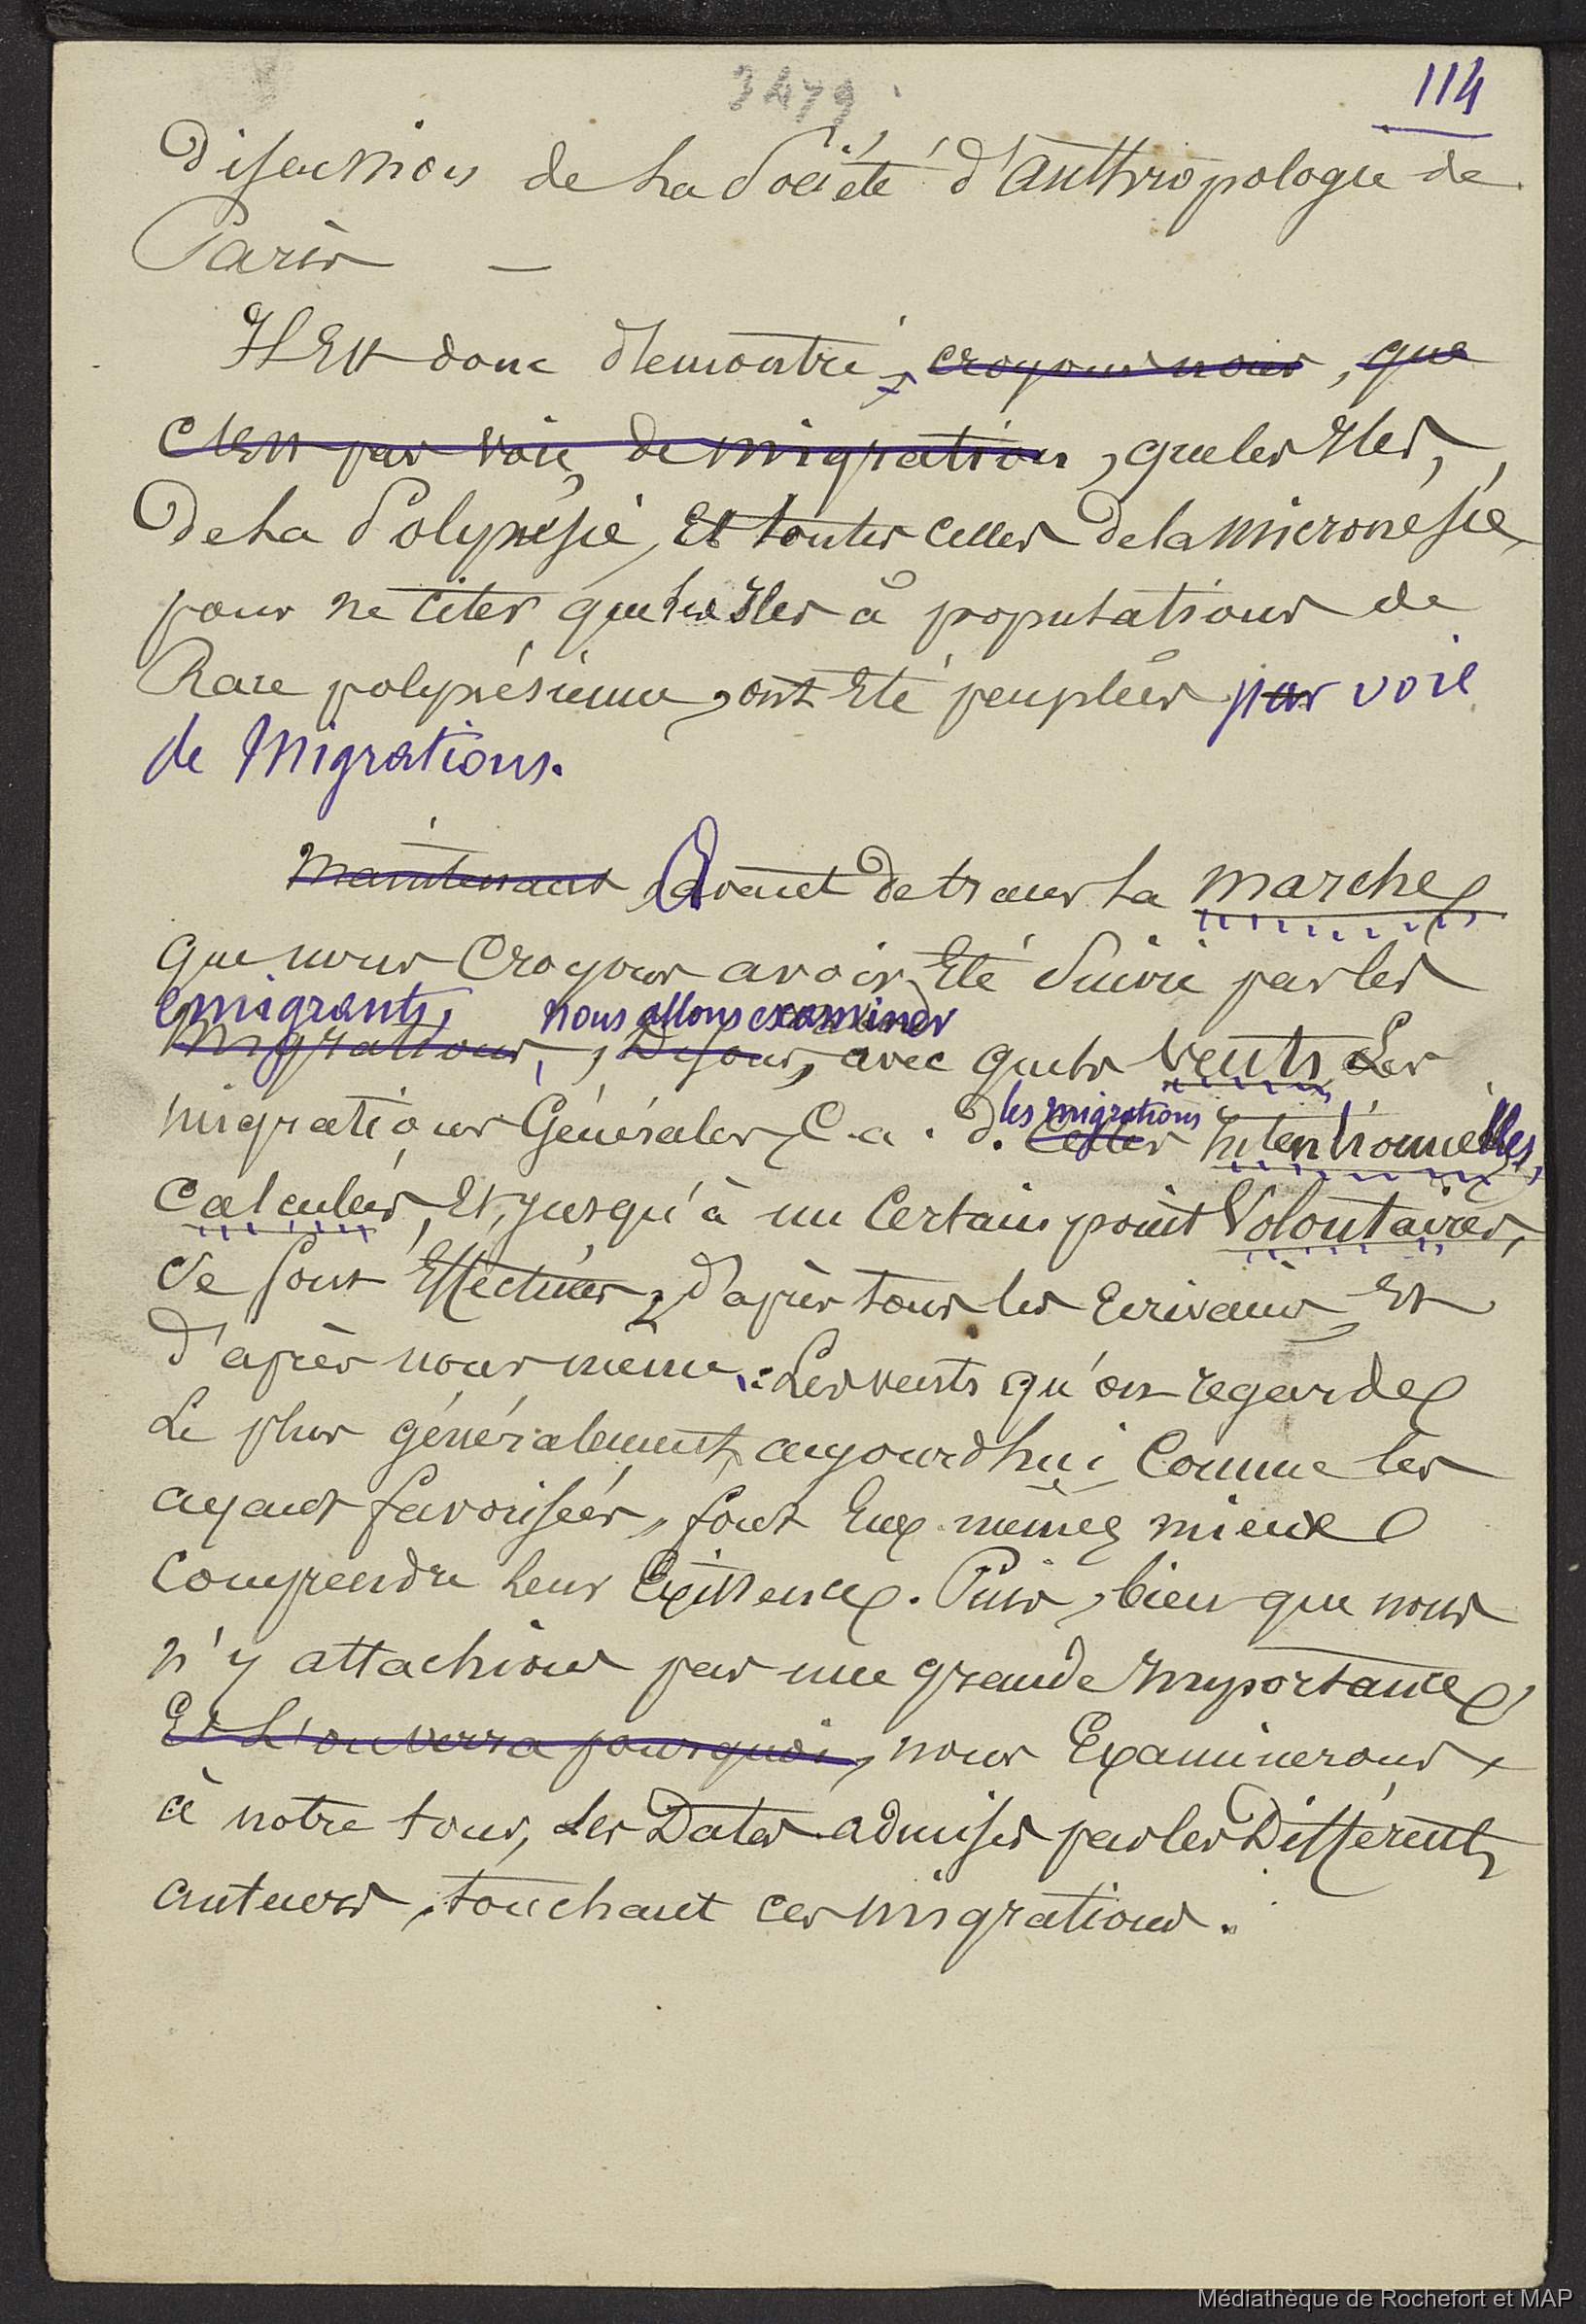 3479
114
Discussions de la Société d'anthropologie de
Paris —
Il Est donc démontré, croyons nous, que
c'est par voie de migration, que les Iles,
De la Polynésie, Et toutes celles de la micronésie,
pour ne citer que les Iles à populations de
Race polynésienne, ont Eté peuplées par voie
de Migrations.
Maintenant Avant de tracer la marche
que nous Croyons avoir Eté Suivie par les
émigrants, nous allons examiner
Migrations, Disons, avec quels vents Les
les migrations
migrations Générales, C.a.d. Celles Intentionnelles,
Calculées, Et, jusqu'à un Certain point Volontaires,
Se sont Effectuées, d'après tous les Ecrivains, Et
d'après nous même : Les vents qu'on regarde
Le plus généralement aujourd'hui Comme les
ayant favorisées, font Eux mêmes mieux
Comprendre Leur Existence. Puis, bien que nous
n'y attachions pas une grande Importance,
Et L'on verra pourquoi, nous Examinerons
à notre tour, Les Dates admises par les Différents
auteurs, touchant ces migrations.
Médiathèque de Rochefort et MAP